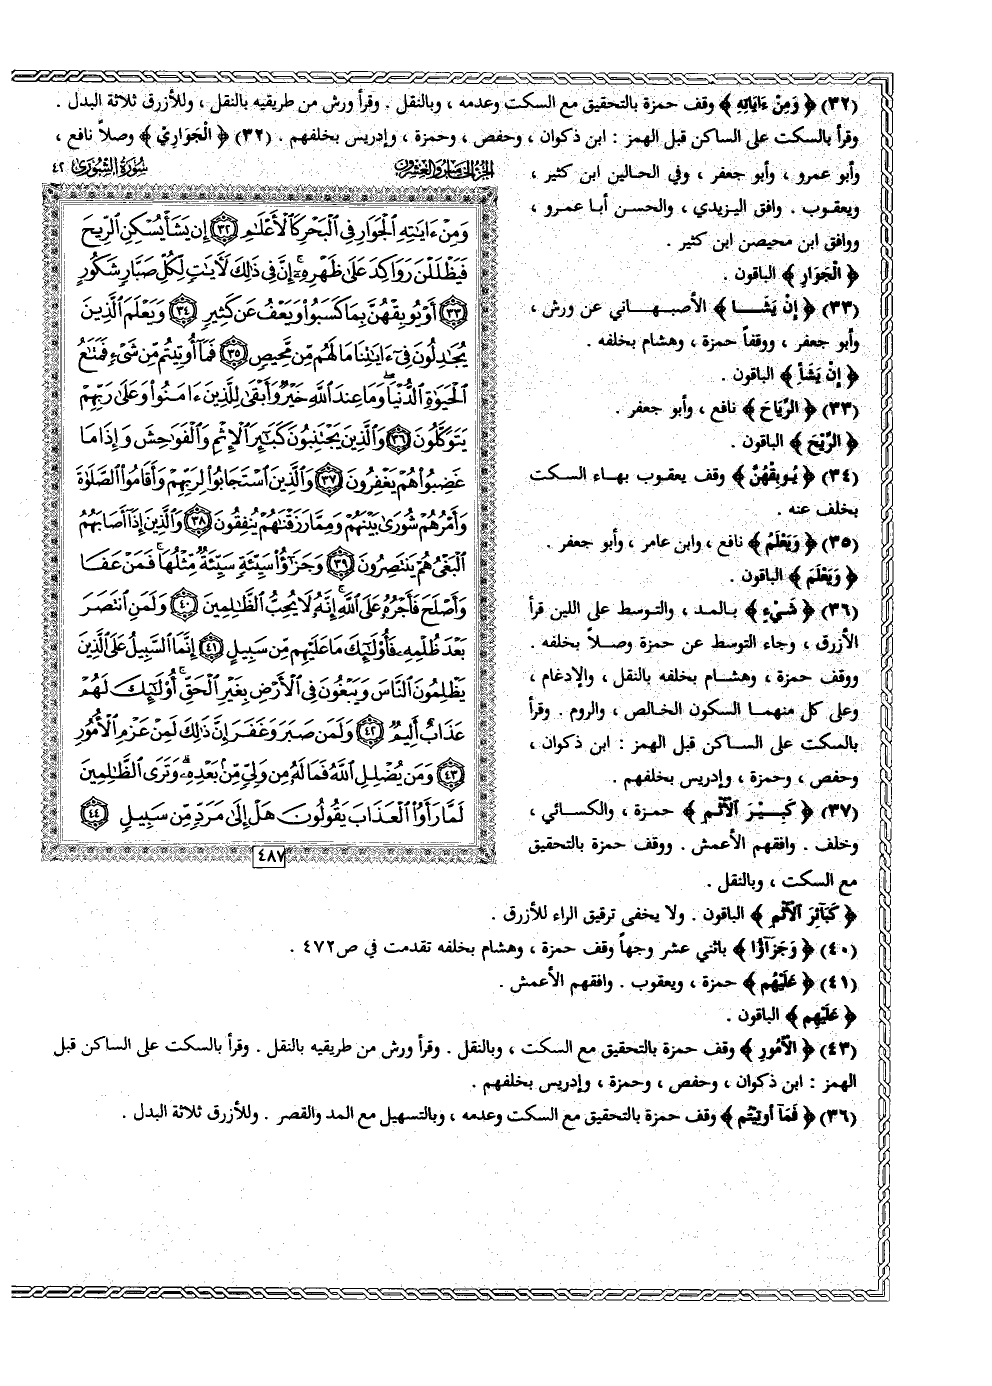 (٣٢) ﴿ وَمِنْ ءَايَاتِهِ ﴾ وقف حمزة بالتحقيق مع السكت وعدمه ، وبالنقل . وقرأ ورش من طريقيه بالنقل ، وللأزرق ثلاثة البدل .
وقرأ بالسكت على الساكن قبل الهمز : ابن ذكوان ، وحفص ، وحمزة ، وإدريس بخلفهم . (٣٢) ﴿ الْجَوَارِي ﴾ وصلاً نافع ،
وأبو عمرو ، وأبو جعفر ، وفي الحالين ابن كثير ،
ويعقوب . وافق اليزيدي ، والحسن أبا عمرو ،
ووافق ابن محيصن ابن كثير .
﴿ الْجَوَارِ ﴾ الباقون .
(٣٣) ﴿ إِنْ يَشَا ﴾ الأصبهاني عن ورش ،
وأبو جعفر ، ووقفاً حمزة ، وهشام بخلفه .
﴿ إِنْ يَشَأْ ﴾ الباقون .
(٣٣) ﴿ الرِّيَاحَ ﴾ نافع ، وأبو جعفر .
﴿ الرِّيْحَ ﴾ الباقون .
(٣٤) ﴿ يُوبِقْهُنَّ ﴾ وقف يعقوب بهاء السكت
بخلف عنه .
(٣٥) ﴿ وَيَعْلَمُ ﴾ نافع ، وابن عامر ، وأبو جعفر .
﴿ وَيَعْلَمَ ﴾ الباقون .
(٣٦) ﴿ شَيْءٍ ﴾ بالمد ، والتوسط على اللين قرأ
الأزرق ، وجاء التوسط عن حمزة وصلاً بخلفه .
ووقف حمزة ، وهشام بخلفه بالنقل ، والإدغام ،
وعلى كل منهما السكون الخالص ، والروم . وقرأ
بالسكت على الساكن قبل الهمز : ابن ذكوان ،
وحفص ، وحمزة ، وإدريس بخلفهم .
(٣٧) ﴿ كَبِيْرَ الْأَثْمِ ﴾ حمزة ، والكسائي ،
وخلف . وافقهم الأعمش . ووقف حمزة بالتحقيق
مع السكت ، وبالنقل .
﴿ كَبَآئِرَ الْأَثْمِ ﴾ الباقون . ولا يخفى ترقيق الراء للأزرق .
(٤٠) ﴿ وَجَزَآؤُا ﴾ باثني عشر وجهاً وقف حمزة ، وهشام بخلفه تقدمت في ص٤٧٢ .
(٤١) ﴿ عَلَيْهُم ﴾ حمزة ، ويعقوب . وافقهم الأعمش .
﴿ عَلَيْهِم ﴾ الباقون .
(٤٣) ﴿ الْأُمُورِ ﴾ وقف حمزة بالتحقيق مع السكت ، وبالنقل . وقرأ ورش من طريقيه بالنقل . وقرأ بالسكت على الساكن قبل
الهمز : ابن ذكوان ، وحفص ، وحمزة ، وإدريس بخلفهم .
(٣٦) ﴿ فَمَآ أُوتِيْتُم ﴾ وقف حمزة بالتحقيق مع السكت وعدمه ، وبالتسهيل مع المد والقصر . وللأزرق ثلاثة البدل .
الجزء الخامس والعشرون
سورة الشورى ٤٢
وَمِنْ ءَايَٰتِهِ الْجَوَارِ فِي الْبَحْرِ كَالْأَعْلَٰمِ ٣٢ إِن يَشَأْ يُسْكِنِ الرِّيحَ
فَيَظْلَلْنَ رَوَاكِدَ عَلَىٰ ظَهْرِهِ إِنَّ فِي ذَٰلِكَ لَآيَٰتٍ لِّكُلِّ صَبَّارٍ شَكُورٍ
٣٣ أَوْ يُوبِقْهُنَّ بِمَا كَسَبُوا وَيَعْفُ عَن كَثِيرٍ ٣٤ وَيَعْلَمَ الَّذِينَ
يُجَٰدِلُونَ فِي ءَايَٰتِنَا مَا لَهُم مِّن مَّحِيصٍ ٣٥ فَمَا أُوتِيتُم مِّن شَيْءٍ فَمَتَٰعُ
الْحَيَوٰةِ الدُّنْيَا وَمَا عِندَ اللَّهِ خَيْرٌ وَأَبْقَىٰ لِلَّذِينَ ءَامَنُوا وَعَلَىٰ رَبِّهِمْ
يَتَوَكَّلُونَ ٣٦ وَالَّذِينَ يَجْتَنِبُونَ كَبَٰئِرَ الْإِثْمِ وَالْفَوَٰحِشَ وَإِذَا مَا
غَضِبُوا هُمْ يَغْفِرُونَ ٣٧ وَالَّذِينَ اسْتَجَابُوا لِرَبِّهِمْ وَأَقَامُوا الصَّلَوٰةَ
وَأَمْرُهُمْ شُورَىٰ بَيْنَهُمْ وَمِمَّا رَزَقْنَٰهُمْ يُنفِقُونَ ٣٨ وَالَّذِينَ إِذَا أَصَابَهُمُ
الْبَغْيُ هُمْ يَنتَصِرُونَ ٣٩ وَجَزَٰؤُا سَيِّئَةٍ سَيِّئَةٌ مِّثْلُهَا فَمَنْ عَفَا
وَأَصْلَحَ فَأَجْرُهُ عَلَى اللَّهِ إِنَّهُ لَا يُحِبُّ الظَّٰلِمِينَ ٤٠ وَلَمَنِ انتَصَرَ
بَعْدَ ظُلْمِهِ فَأُولَٰئِكَ مَا عَلَيْهِم مِّن سَبِيلٍ ٤١ إِنَّمَا السَّبِيلُ عَلَى الَّذِينَ
يَظْلِمُونَ النَّاسَ وَيَبْغُونَ فِي الْأَرْضِ بِغَيْرِ الْحَقِّ أُولَٰئِكَ لَهُمْ
عَذَابٌ أَلِيمٌ ٤٢ وَلَمَن صَبَرَ وَغَفَرَ إِنَّ ذَٰلِكَ لَمِنْ عَزْمِ الْأُمُورِ
٤٣ وَمَن يُضْلِلِ اللَّهُ فَمَا لَهُ مِن وَلِيٍّ مِّن بَعْدِهِ وَتَرَى الظَّٰلِمِينَ
لَمَّا رَأَوُا الْعَذَابَ يَقُولُونَ هَلْ إِلَىٰ مَرَدٍّ مِّن سَبِيلٍ ٤٤
٤٨٧